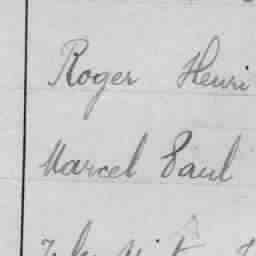 Roger Henri
Marcel Paul